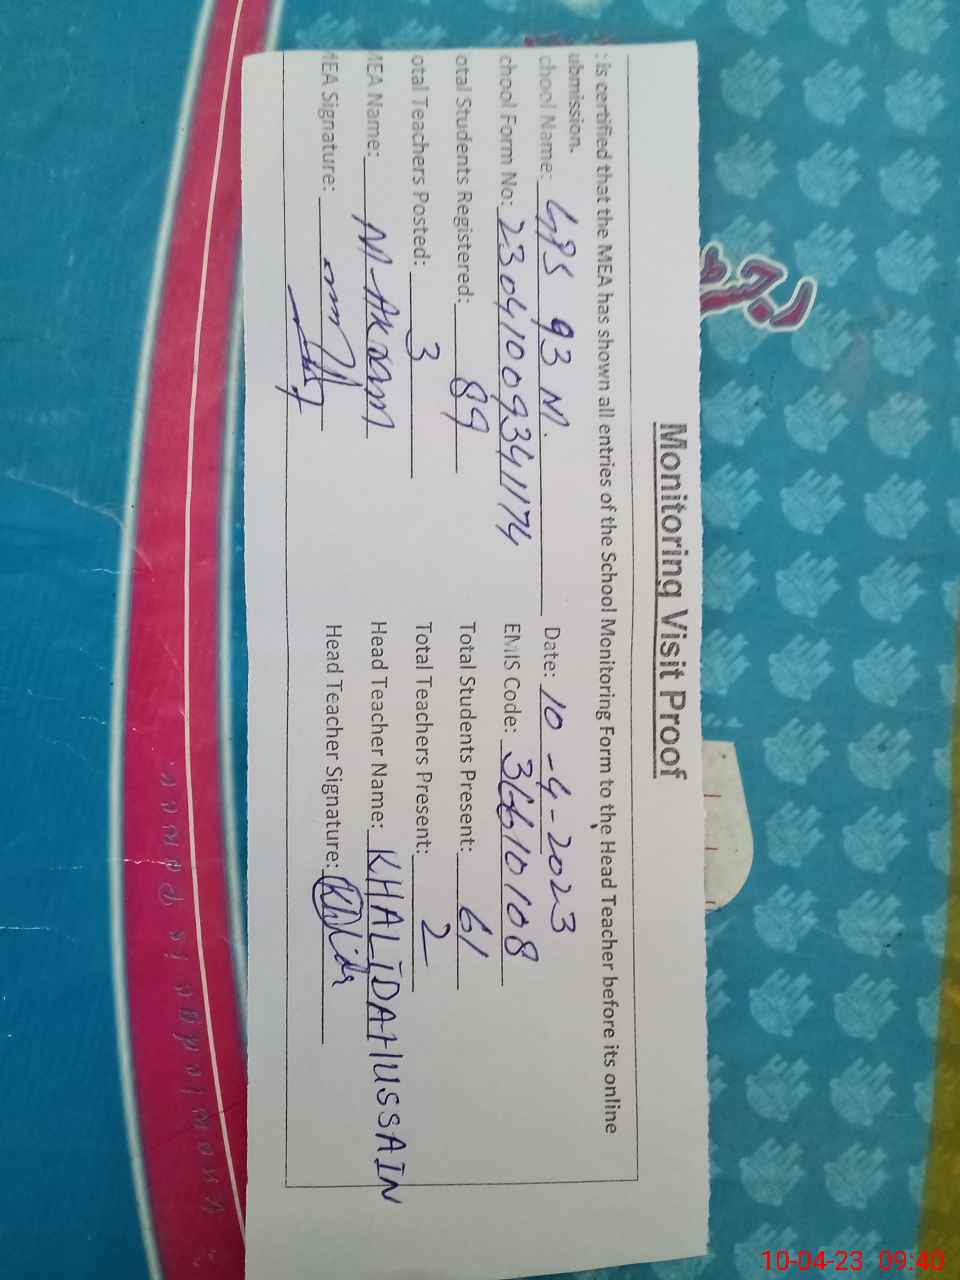 Monitoring Visit Proof
: is certified that the MEA has shown all entries of the School Monitoring Form to the Head Teacher before its online
ubmission.
chool Name: GPS 93 M. Date: 10-4-2023
chool Form No: 23041009341174 EMIS Code: 36610108
otal Students Registered: 89 Total Students Present: 61
otal Teachers Posted: 3 Total Teachers Present: 2
MEA Name: M-AKRAM Head Teacher Name: KHALIDA HUSSAIN
MEA Signature: Head Teacher Signature: Khalida
10-04-23 09:40